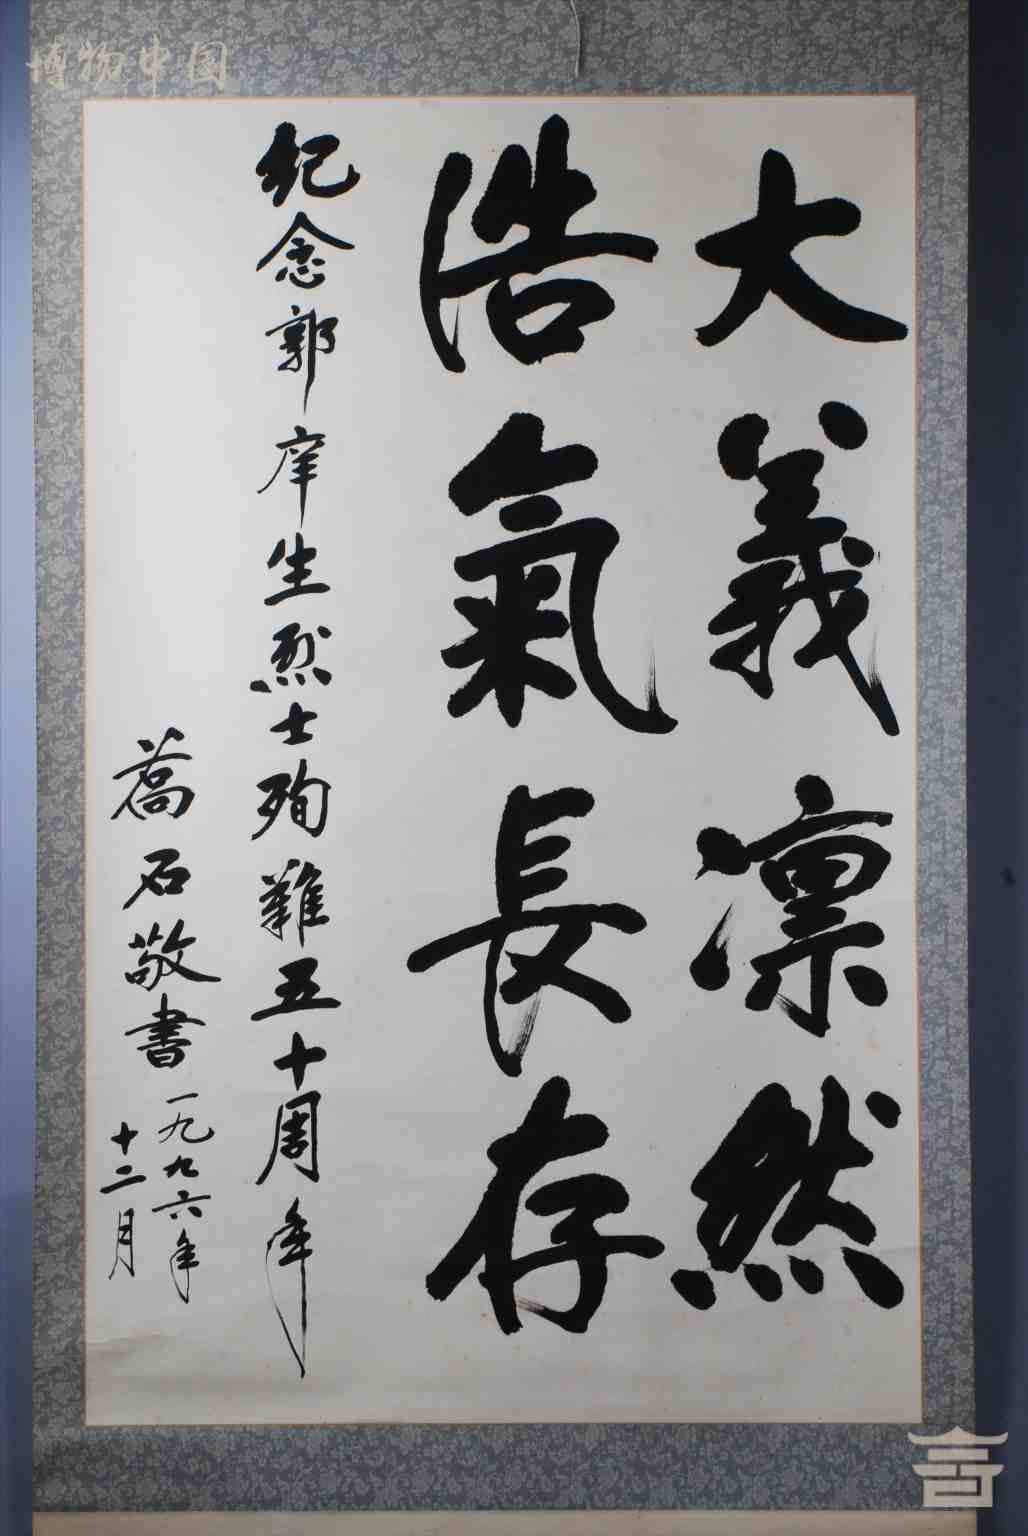 博物中国
大義凛然
浩氣長存
纪念郭庠生烈士殉難五十周年
喬石敬書
一九九六年
十二月